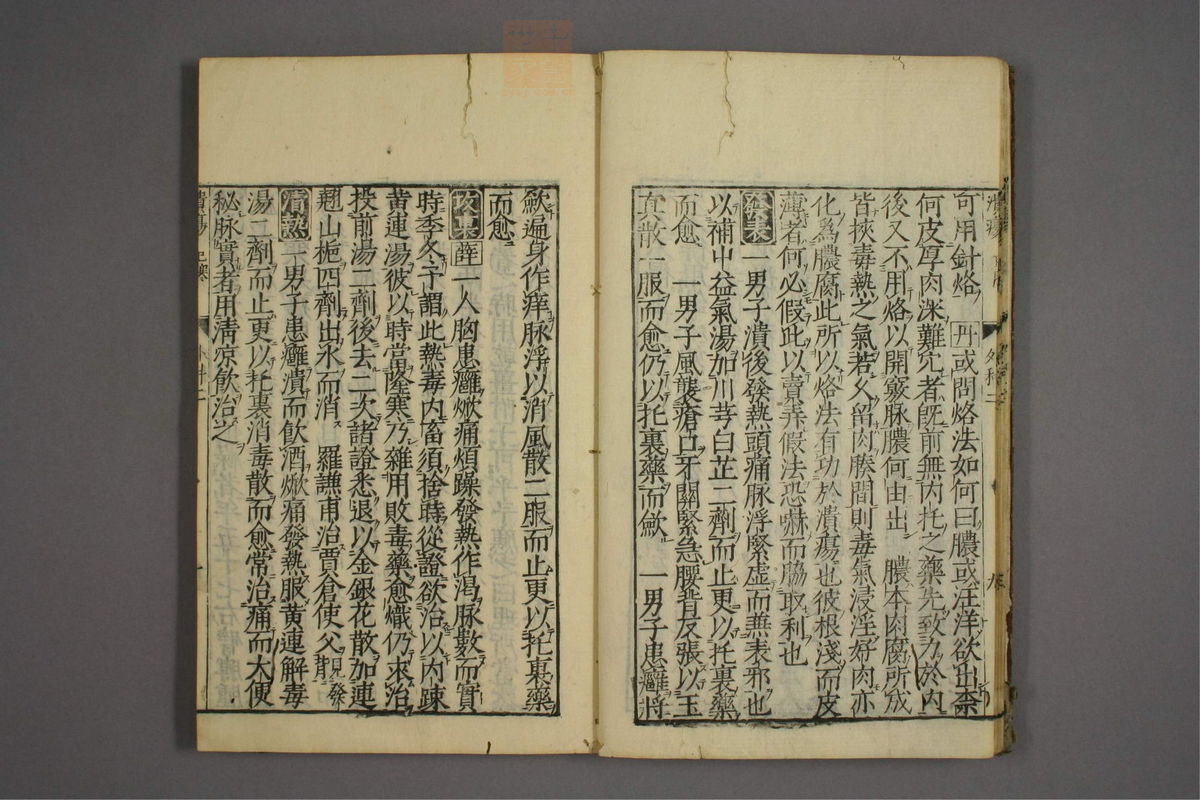 可用針烙 丹或問烙法如何曰膿或汪洋欲出柰
何皮厚肉深難穴者旣前無内托之藥先致力於内
後又不用烙以開竅脉膿何由出 膿本肉腐所成
皆挾毒熱之氣若久留肉腠間則毒氣浸淫好肉亦
化為膿腐此所以烙法有功於潰瘍也彼根淺而皮
薄者何必假此以賣弄假法恐嚇而脇取利也
發表一男子潰後發熱頭痛脉浮緊虚而無表邪也
以補中益氣湯加川芎白芷二劑而止更以托裏藥
而愈 一男子風襲瘡口牙關緊急腰背反張以玉
真散一服而愈仍以托裏藥而歛 一男子患癰將
歛遍身作痒脉浮以消風散二服而止更以托裏藥
而愈
攻裏薛一人胸患癰焮痛煩躁發熱作渴脉數而實
時季冬予謂此熱毒内畜須捨時從證欲治以内疎
黄連湯彼以時當隆寒乃雜用敗毒藥愈熾仍來治
投前湯二劑後去二次諸證悉退以金銀花散加連
翹山梔四劑出水而消 羅謙甫治賈倉使父 見發背
清熱一男子患癰潰而飲酒焮痛發熱服黄連解毒
湯二劑而止更以托裏消毒散而愈常治痛而大便
秘脉實者用清凉飲治之
外科二